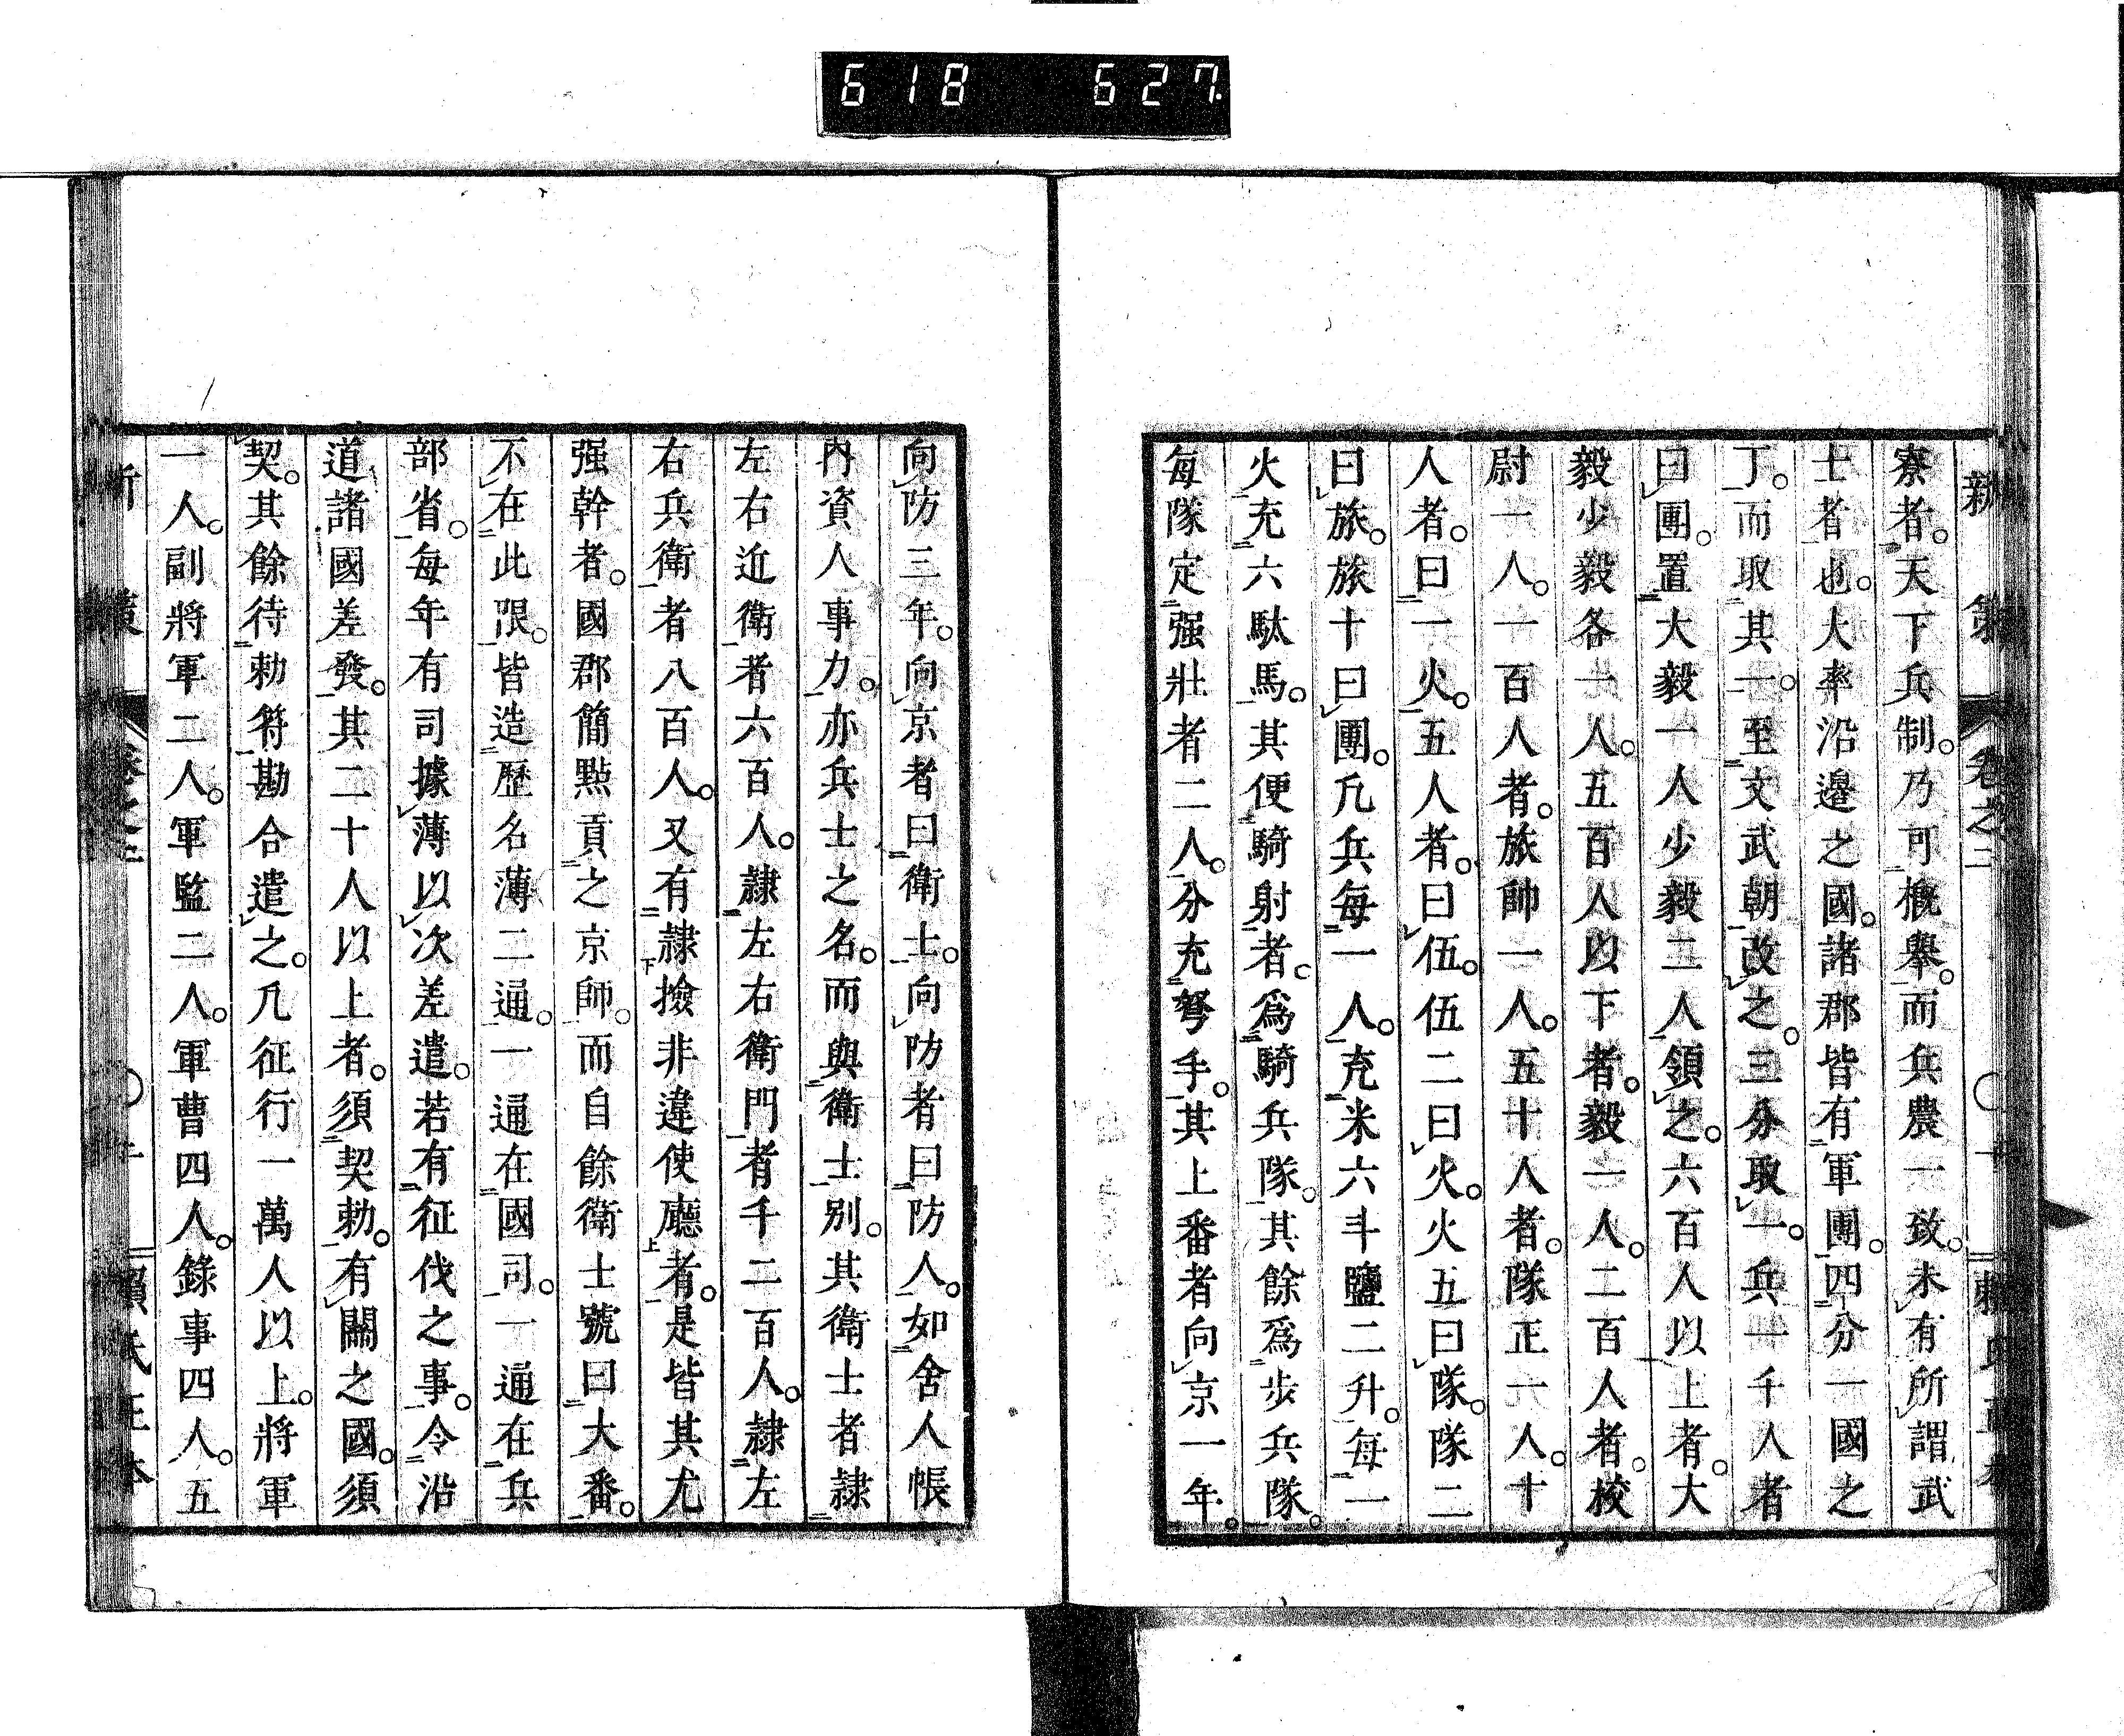 618 627.
新策 卷之二 〇 賴氏正本
寮者。天下兵制。乃可槪舉。而兵農一致。未有所謂武
士者也。大率沿邊之國。諸郡皆有軍團。四分一國之
丁。而取其一。至文武朝改之。三分取一。兵一千人者
曰團。置大毅一人少毅二人領之。六百人以上者。大
毅少毅各一人。五百人以下者。毅一人。二百人者。校
尉一人。一百人者。旅帥一人。五十人者。隊正一人。十
人者。曰一火。五人者。曰伍。伍二曰火。火五曰隊。隊二
曰旅。旅十曰團。凡兵每一人。充米六斗鹽二升。每一
火充六駄馬。其便騎射者。爲騎兵隊。其餘爲步兵隊。
每隊定强壯者二人。分充弩手。其上番者向京一年。
向防三年。向京者曰衛士。向防者曰防人。如舍人帳
內資人事力。亦兵士之名。而與衛士別。其衛士者隷
左右近衛者六百人。隷左右衛門者千二百人。隷左
右兵衛者八百人。又有隷撿非違使廳者。是皆其尤
强幹者。國郡簡㸃貢之京師。而自餘衛士號曰大番。
不在此限。皆造歷名薄二通。一通在國司。一通在兵
部省。每年有司據薄以次差遣。若有征伐之事。令沿
道諸國差發。其二十人以上者。須契勅。有關之國。須
契。其餘待勅符勘合遣之。凡征行一萬人以上。將軍
一人。副將軍二人。軍監二人。軍曹四人。錄事四人。五